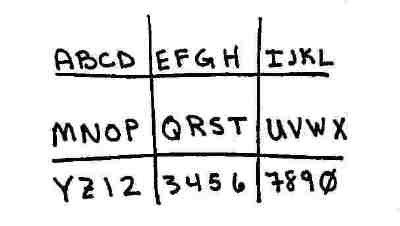 ABCD EFGH IJKL
MNOP QRST UVWX
YZ12 3456 7890